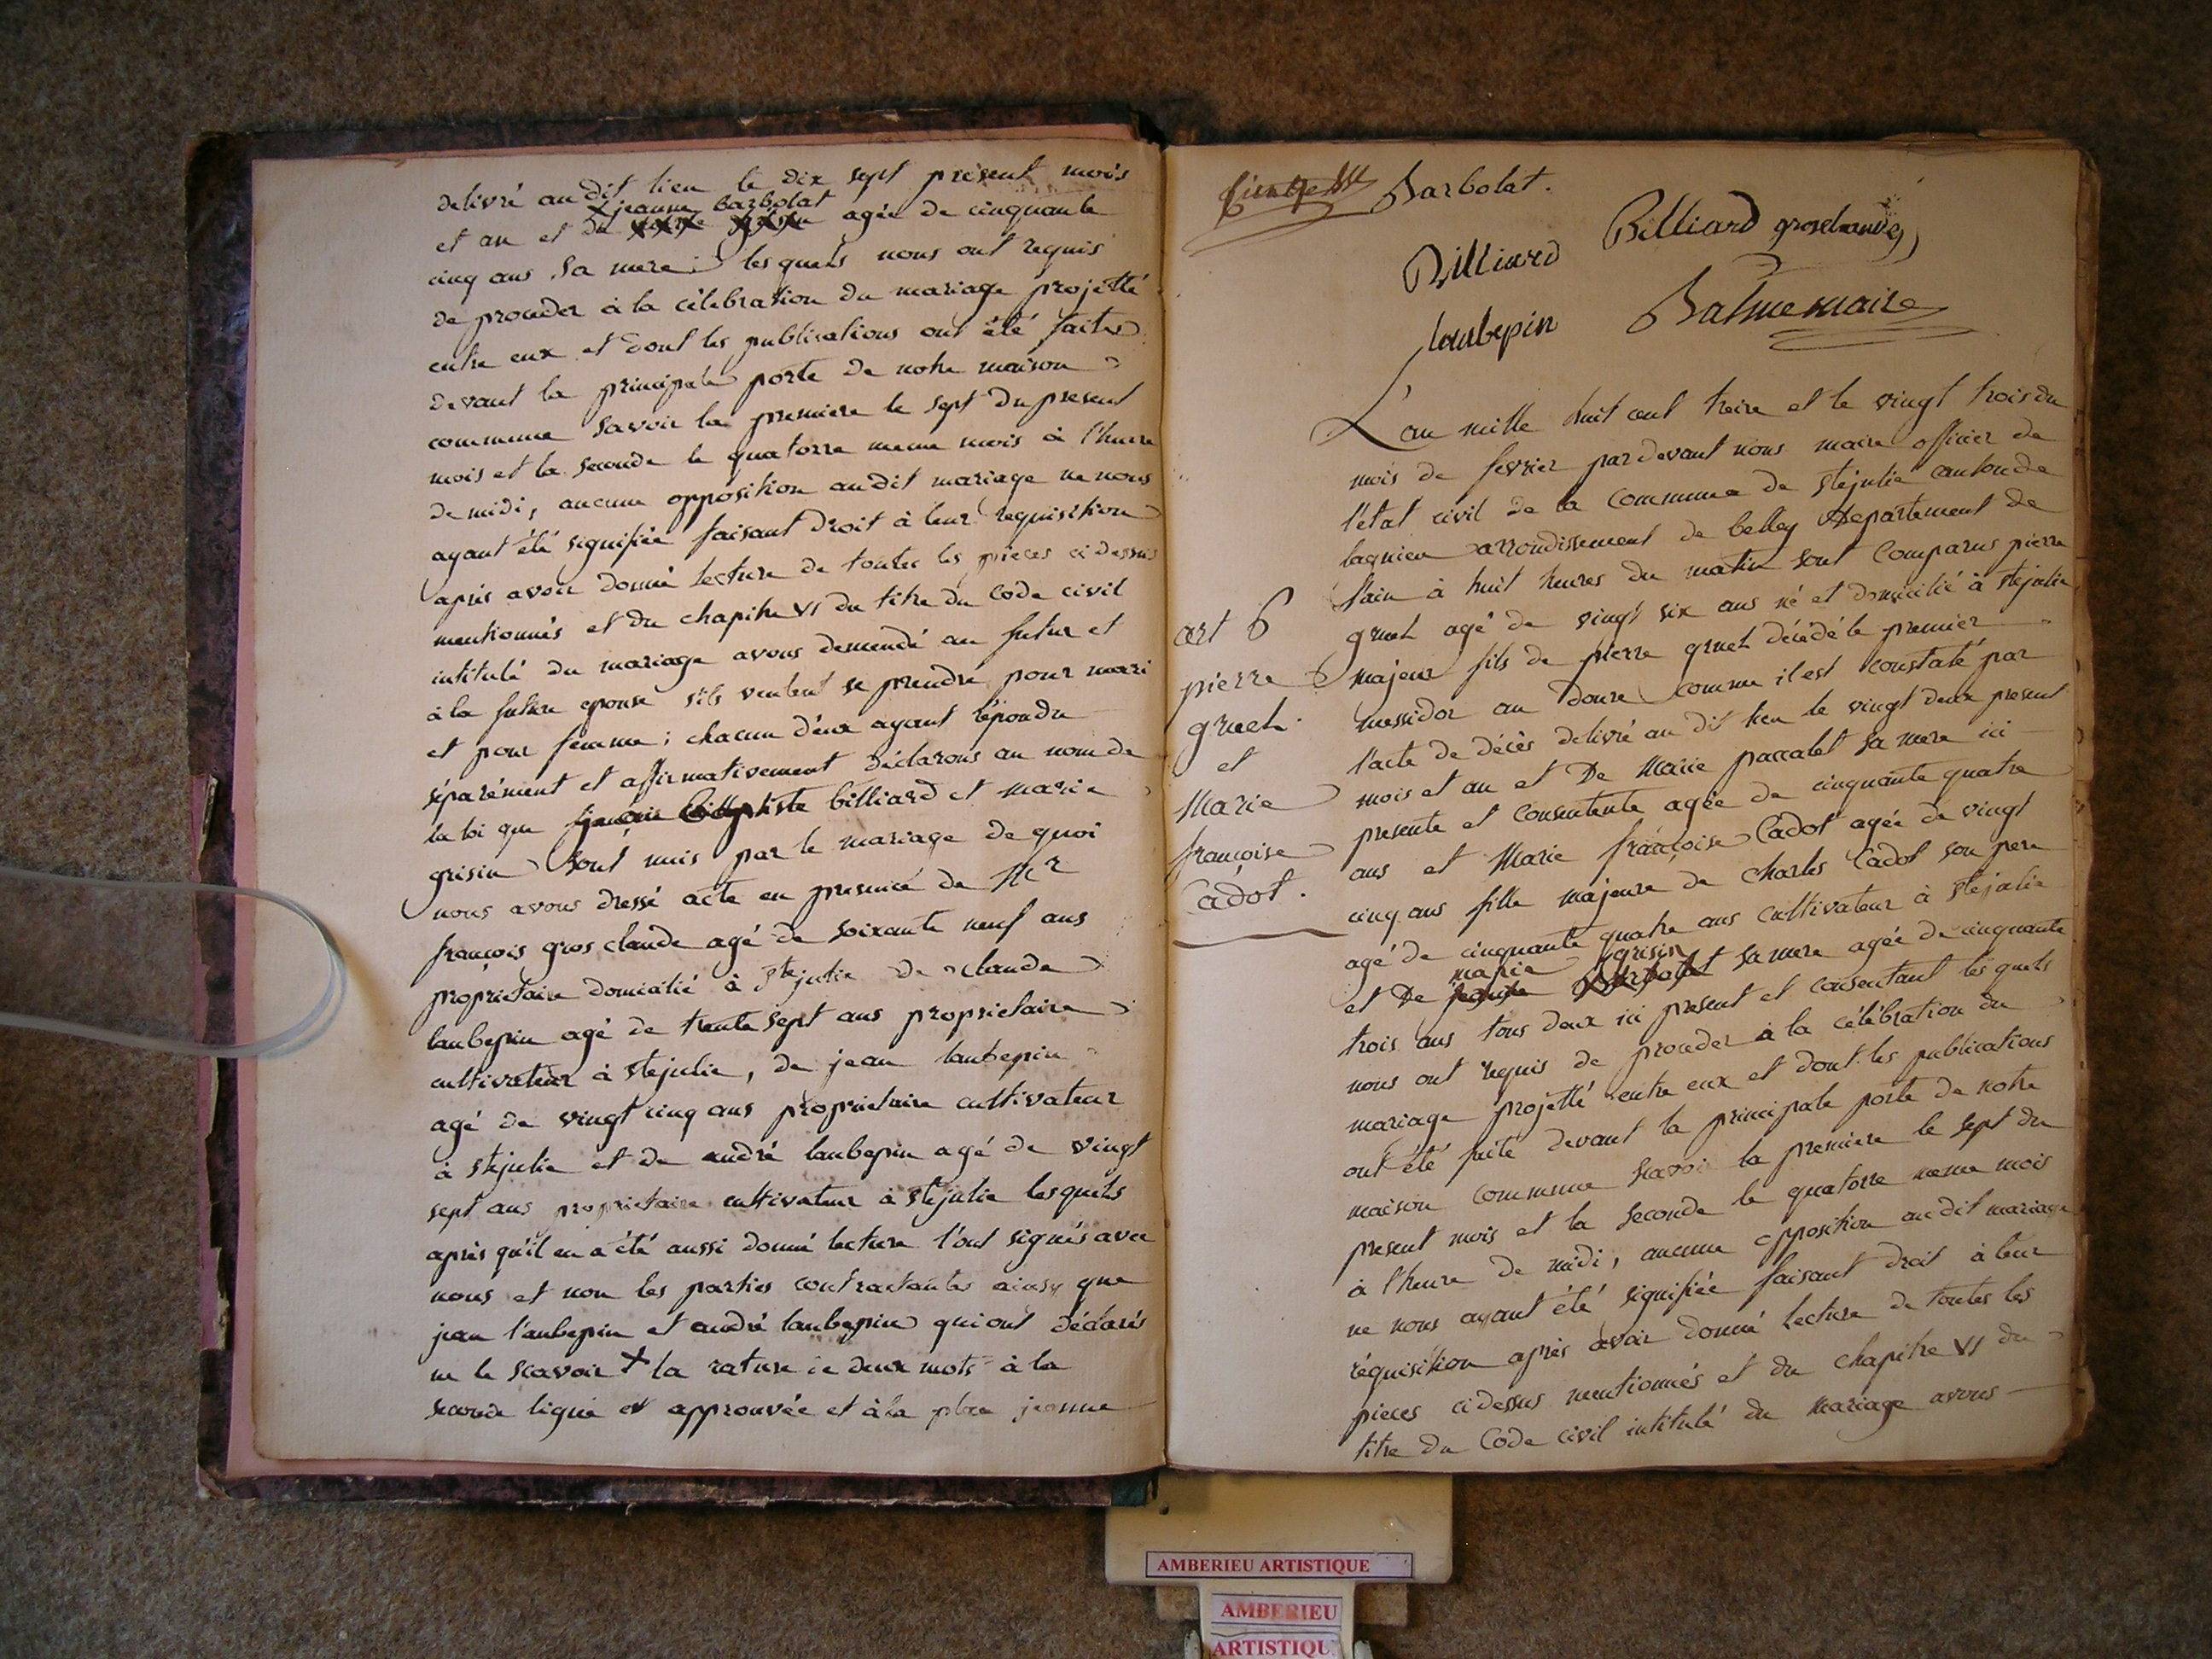 delivré au dit lieu le dix sept présent mois
x jeanne Barbolat
et an et de agée de cinquante
cinq ans sa mere; lesquels nous ont requis
de proceder à la célebration du mariage projetté
entre eux et dont les publications ont été faites
devant la principale porte de notre maison
commune savoir la premiere le sept du present
mois et la seconde le quatorze meme mois à l'heure
de midi, aucune opposition audit mariage ne nous
ayant été signifiée faisant droit à leur requisition
après avoir donné lecture de toutes les pieces ci dessus
mentionnés et du chapitre VI du titre du Code civil
intitulé du mariage avons demendé au futur et
à la future epouse s'ils veulent se prendre pour mari
et pour femme; chacun d'eux ayant répondu
séparément et affirmativement déclarons au nom de
la loi que billiard et marie
grisin sont unis par le mariage de quoi
nous avons dressé acte en presence de Mr
françois gros claude agé de soixante neuf ans
proprietaire domicilié à stejulie de claude
laubepin agé de trente sept ans proprietaire
cultivateur à stejulie, de jean laubepin
agé de vingt cinq ans proprietaire cultivateur
à stejulie et de andré laubepin agé de vingt
sept ans proprietaire cultivateur à stejulie lesquels
après qu'il en a été aussi donné lecture l'ont signés avec
nous et non les parties contractantes ainsy que
jean l'aubepin et andré laubepin qui ont déclarés
ne le scavoir + la rature de deux mots à la
seconde ligne est approuvée et à la place jeanne
Barbolat.
Billiard Billiard grosclaude
laubepin Balme maire
L'an mille huit cent treize et le vingt trois du
mois de fevrier pardevant nous maire officier de
l'état civil de la Commune de stejulie canton de
lagnieu arrondissement de belley departement de
l'ain à huit heures du matin sont Comparus pierre
art 6
pierre
gruel
et
Marie
françoise
Cadot.
gruel agé de vingt six ans né et domicilié à stejulie
majeur fils de pierre gruel décédé le premier
messidor an douze comme il est constaté par
l'acte de décès delivré au dit lieu le vingt deux present
mois et an et De Marie paccalet sa mere ici
presente et consentente agée de cinquante quatre
ans et Marie françoise Cadot agée de vingt
cinq ans fille majeure de Charles Cadot son pere
agé de cinquante quatre ans cultivateur à stejulie
marie grisin
et De jeanne Barbolat sa mere agée de cinquante
trois ans tous deux ici present et consentant lesquels
nous ont requis de proceder à la célébration du
mariage projetté entre eux et dont les publications
ont été faite devant la principale porte de notre
maison commune scavoir la premiere le sept du
present mois et la seconde le quatorze meme mois
à l'heure de midi, aucune opposition audit mariage
ne nous ayant été signifiée faisant droit à leur
réquisition après avoir donné lecture de toutes les
pieces ci dessus mentionnés et du chapitre VI du
titre du Code civil intitulé du Mariage avons
AMBERIEU ARTISTIQUE
AMBERIEU
ARTISTIQU